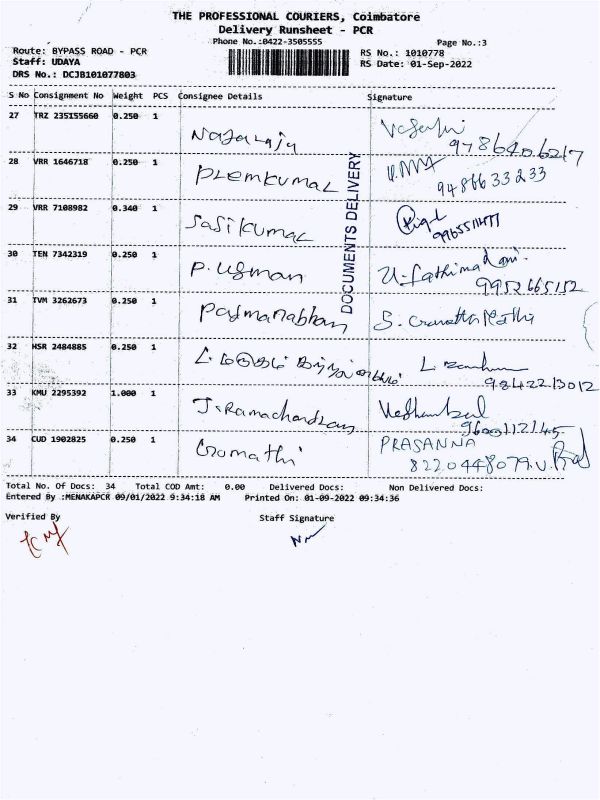 THE PROFESSIONAL COURIERS, Coimbatore
Delivery Runsheet - PCR
Phone No.:0422-3505555
Page No.:3
Route: BYPASS ROAD - PCR
RS No.: 1010778
Staff: UDAYA
RS Date: 01-Sep-2022
DRS No.: DCJB101077803
S No Consignment No Weight PCS Consignee Details Signature
27 TRZ 235155660 0.250 1 Nagaraju
28 VRR 1646718 0.250 1 Premkumar
9486633233
29 VRR 7108982 0.340 1 Sasikumar
30 TEN 7342319 0.250 1 P. Usman U. Fathima
9952665152
31 TVM 3262673 0.250 1 Padmanabhan S.
32 HSR 2484885 0.250 1 L. L.
9842213012
33 KMU 2295392 1.000 1 J. Ramachandran
9600112145
34 CUD 1902825 0.250 1 Gomathi PRASANNA
8220448079
DOCUMENTS DELIVERY
Total No. Of Docs: 34 Total COD Amt: 0.00 Delivered Docs: Non Delivered Docs:
Entered By :MENAKAPCR 09/01/2022 9:34:18 AM Printed On: 01-09-2022 09:34:36
Verified By Staff Signature